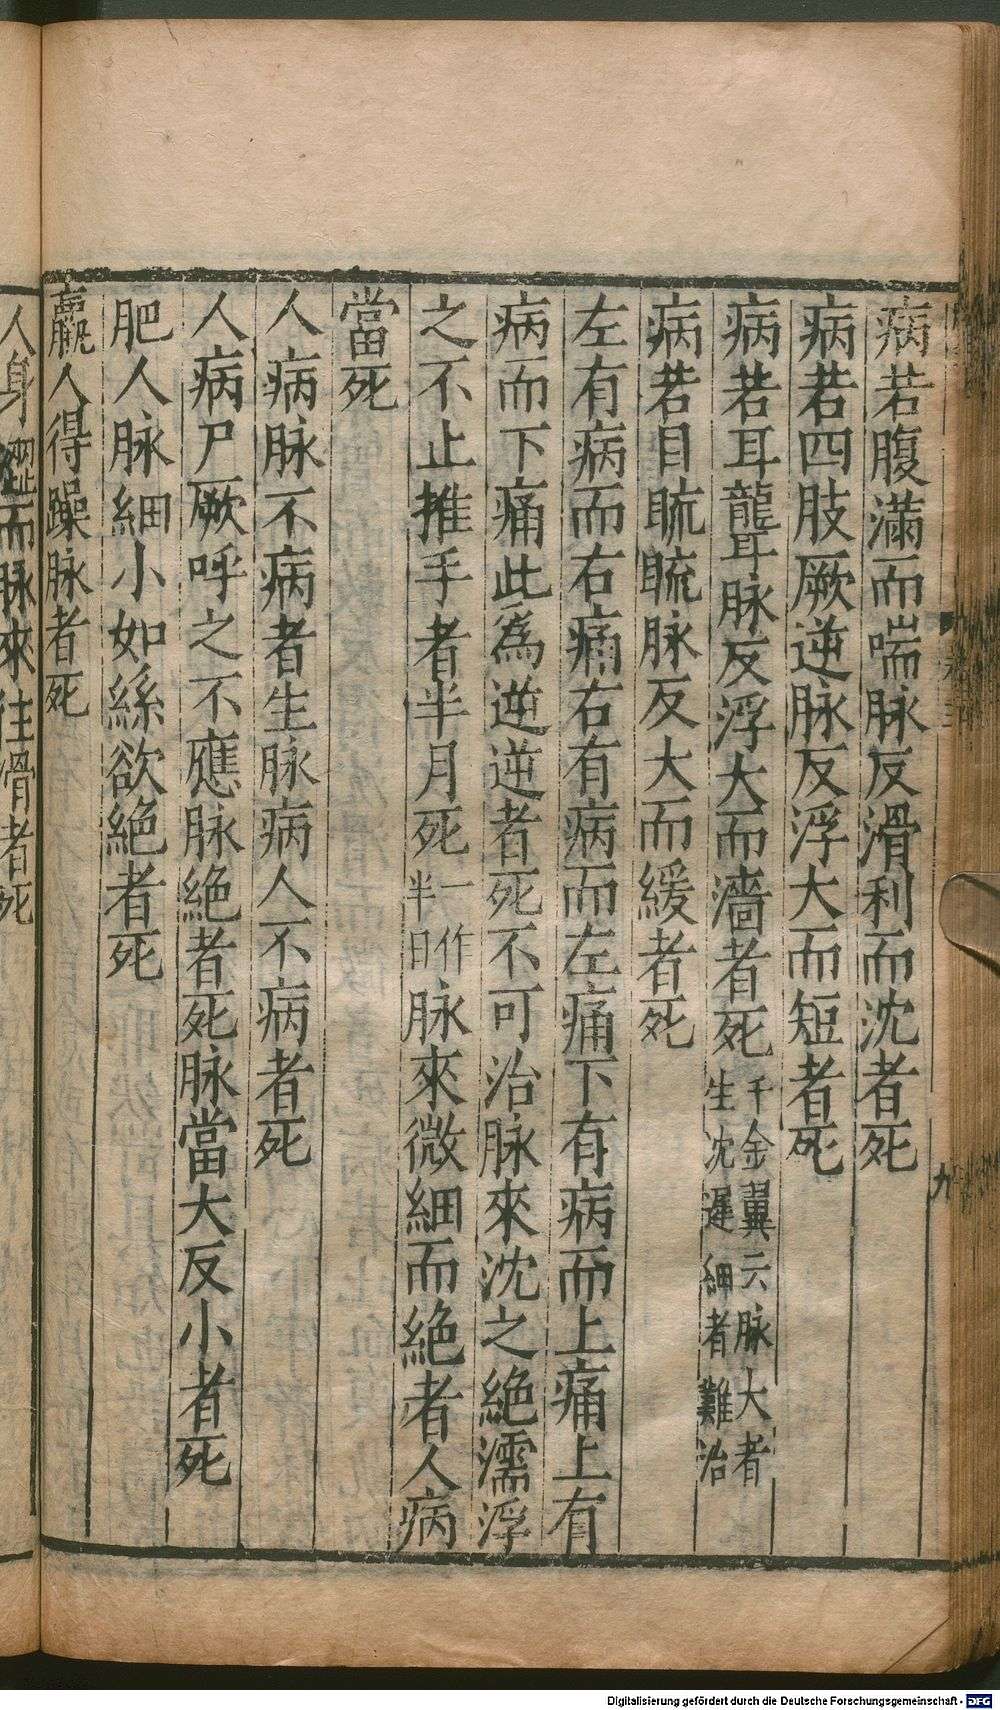 病若腹滿而喘脉反滑利而沈者死
病若四肢厥逆脉反浮大而短者死
病若耳聾脉反浮大而濇者死千金翼云脉大者生沈遲細者難治
病若目䀮䀮脉反大而緩者死
左有病而右痛右有病而左痛下有病而上痛上有
病而下痛此爲逆逆者死不可治脉來沈之絶濡浮
之不止推手者半月死一作半日脉來微細而絶者人病
當死
人病脉不病者生脉病人不病者死
人病尸厥呼之不應脉絶者死脉當大反小者死
肥人脉細小如絲欲絶者死
羸人得躁脉者死
人身澀而脉來往滑者死
九
Digitalisierung gefördert durch die Deutsche Forschungsgemeinschaft - DFG